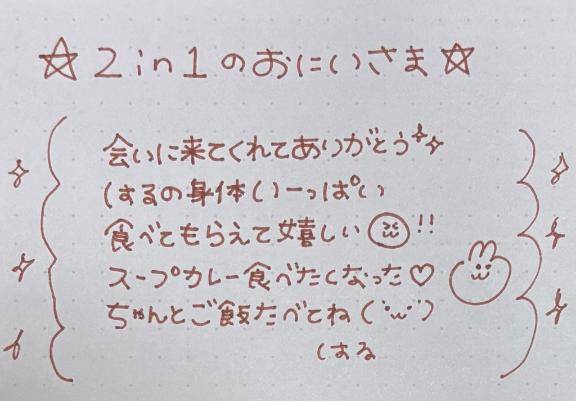 ☆2in1のおにいさま☆
会いに来てくれてありがとう
はするの身体いーっぱい
食べてもらえて嬉しい!!
スープカレー食べたくなった♡
ちゃんとご飯たべてね(˙ω˙)
はする